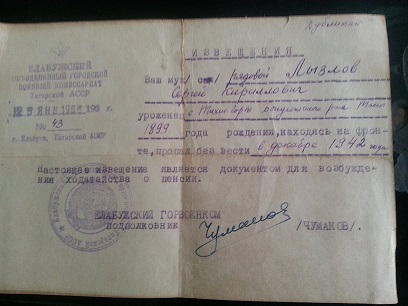 Дубликат
ЕЛАБУЖСКИЙ
ОБЪЕДИНЕННЫЙ ГОРОДСКОЙ
ВОЕННЫЙ КОМИССАРИАТ
Татарской АССР
ЯНВ 195 г.
№ 43
г. Елабуга, Татарской АССР
ИЗВЕЩЕНИЯ
Ваш муж рядовой Лызлов
Сергей Кириллович
уроженец
1899 года рождения, находясь на фрон-
те, пропал без вести 6 декабря 1942 года
настоящее извещение является документом для возбужде-
ния ходатайства о пенсии.
ЕЛАБУЖСКИЙ ГОРВОЕНКОМ
ПОДПОЛКОВНИК Чумаков /ЧУМАКОВ/.